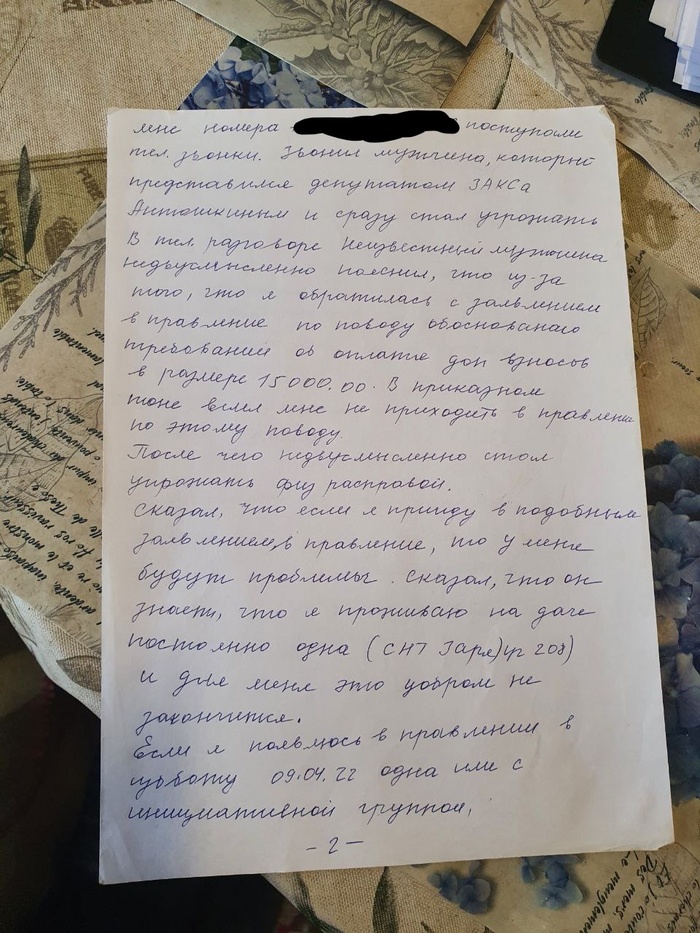 мне номера поступали
тел. звонки. Звонил мужчина, который
представился депутатом ЗАКСа
Антошкиным и сразу стал угрожать
В тел. разговоре Неизвестный мужчина
недвусмысленно пояснил, что из-за
того, что я обратилась с заявлением
в правление по поводу обоснованого
требований об оплате доп взносов
в размере 15000.00. В приказном
тоне велел мне не приходить в правление
по этому поводу.
После чего недвусмысленно стал
угрожать физ расправой.
Сказал, что если я приду в подобным
заявлением, в правление, то у меня
будут проблемы. Сказал, что он
знает, что я проживаю на даче
постоянно одна (СНТ Заря) уч 208)
и для меня это добром не
закончится.
Если я появлюсь в правлении в
субботу 09.04.22 одна или с
инициативной группой,
- 2 -